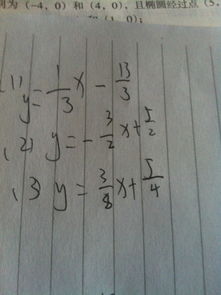 为 (-4, 0) 和 (4, 0), 且椭圆经过点 (5,
和 (1, 0);
(1) y = 1/3 x - 13/3
(2) y = - 3/2 x + 5/2
(3) y = 3/8 x + 5/4